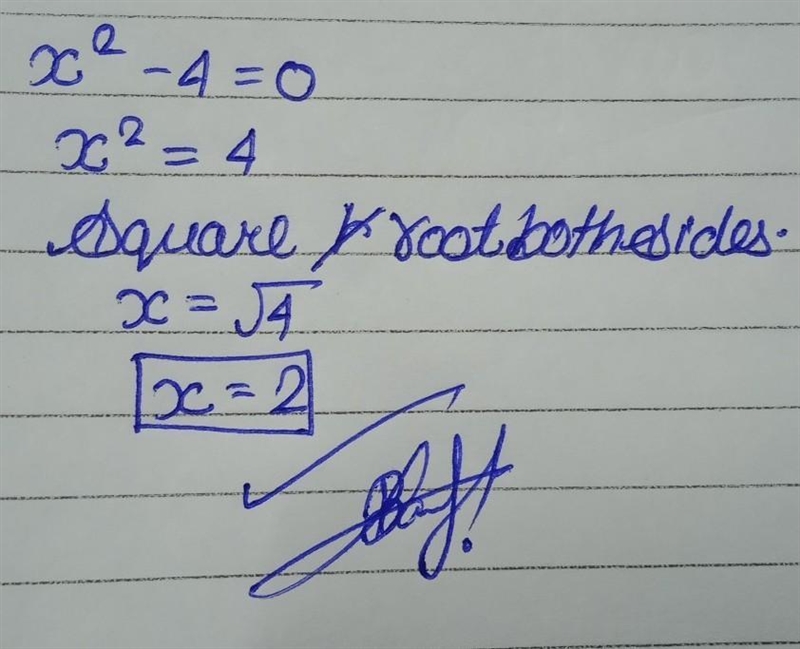 x² - 4 = 0
x² = 4
Square root both sides.
x = √4
x = 2